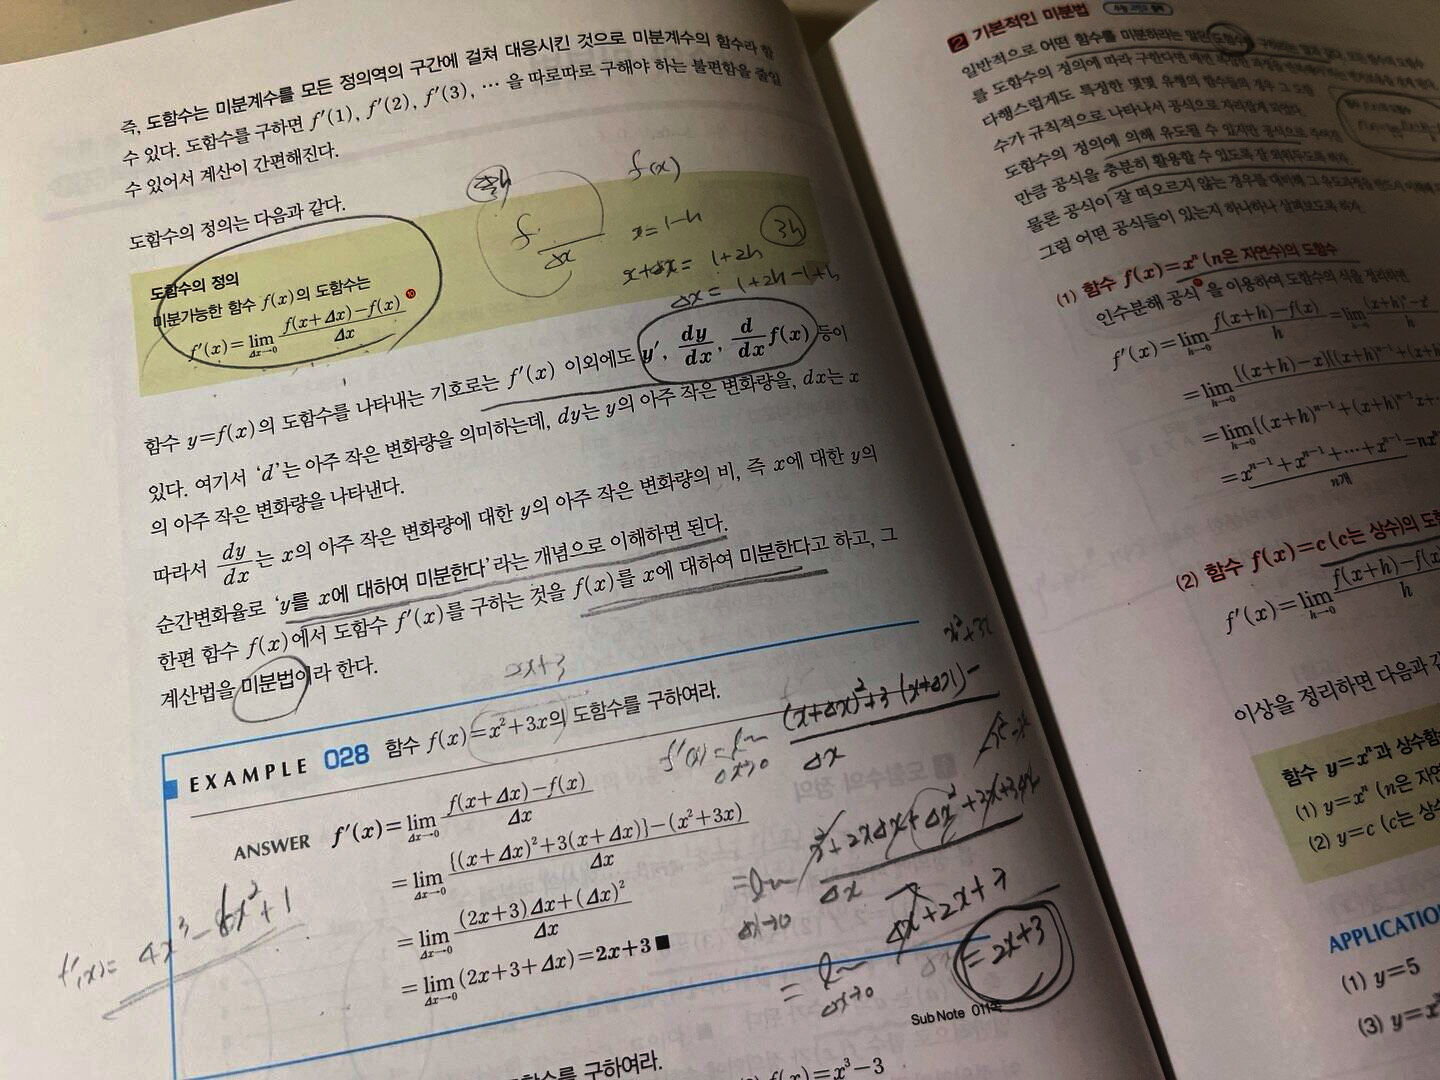 즉, 도함수는 미분계수를 모든 정의역의 구간에 걸쳐 대응시킨 것으로 미분계수의 함수라 할
수 있다. 도함수를 구하면 f′(1), f′(2), f′(3), ⋯ 을 따로따로 구해야 하는 불편함을 줄일
수 있어서 계산이 간편해진다.
도함수의 정의는 다음과 같다.
도함수의 정의
미분가능한 함수 f(x)의 도함수는
f′(x)=lim Δx→0 (f(x+Δx)−f(x))/Δx
f(x)
f/Δx
x=1−h
3h
x+Δx=1+2h
Δx=1+2h−1+h
함수 y=f(x)의 도함수를 나타내는 기호로는 f′(x) 이외에도 y′, dy/dx, d/dx f(x) 등이
있다. 여기서 ‘d’는 아주 작은 변화량을 의미하는데, dy는 y의 아주 작은 변화량을, dx는 x
의 아주 작은 변화량을 나타낸다.
따라서 dy/dx는 x의 아주 작은 변화량에 대한 y의 아주 작은 변화량의 비, 즉 x에 대한 y의
순간변화율로 ‘y를 x에 대하여 미분한다’라는 개념으로 이해하면 된다.
한편 함수 f(x)에서 도함수 f′(x)를 구하는 것을 f(x)를 x에 대하여 미분한다고 하고, 그
계산법을 미분법이라 한다.
2x+3
EXAMPLE 028 함수 f(x)=x²+3x의 도함수를 구하여라.
ANSWER f′(x)=lim Δx→0 (f(x+Δx)−f(x))/Δx
=lim Δx→0 ({(x+Δx)²+3(x+Δx)}−(x²+3x))/Δx
=lim Δx→0 ((2x+3)Δx+(Δx)²)/Δx
=lim Δx→0 (2x+3+Δx)=2x+3 ■
f′(x)=lim Δx→0 ((x+Δx)²+3(x+Δx)−/Δx
=lim Δx→0
=lim Δx→0 Δx+2x+3
=2x+3
f′(x)=4x³−6x²+1
Sub Note 011쪽
구하여라.
f(x)=x³−3
2 기본적인 미분법
일반적으로 어떤 함수를 미분하라는 말은 도함수를
를 도함수의 정의에 따라 구한다면
다행스럽게도 특정한 몇몇 유형의 함수들의 경우 그
수가 규칙적으로 나타나서 공식으로 자리잡게 되었다.
도함수의 정의에 의해 유도될 수 있지만 공식으로
만큼 공식을 충분히 활용할 수 있도록 잘 외워두도록 하자.
물론 공식이 잘 떠오르지 않는 경우를 대비해 그 유도과정을
그럼 어떤 공식들이 있는지 하나하나 살펴보도록 하자.
(1) 함수 f(x)=xⁿ (n은 자연수)의 도함수
인수분해 공식을 이용하여 도함수의 식을 정리하면
f′(x)=lim h→0 (f(x+h)−f(x))/h=lim h→0 (x+h)ⁿ−xⁿ
=lim h→0 {(x+h)−x}{(x+h)ⁿ⁻¹+(x+h)
=lim h→0 {(x+h)ⁿ⁻¹+(x+h)ⁿ⁻²x+⋯
=xⁿ⁻¹+xⁿ⁻¹+⋯+xⁿ⁻¹=nxⁿ
n개
(2) 함수 f(x)=c (c는 상수)의 도함
f′(x)=lim h→0 (f(x+h)−f(x)/h
이상을 정리하면 다음과 같
함수 y=xⁿ과 상수함
(1) y=xⁿ (n은 자연
(2) y=c (c는 상수
APPLICATION
(1) y=5
(3) y=x